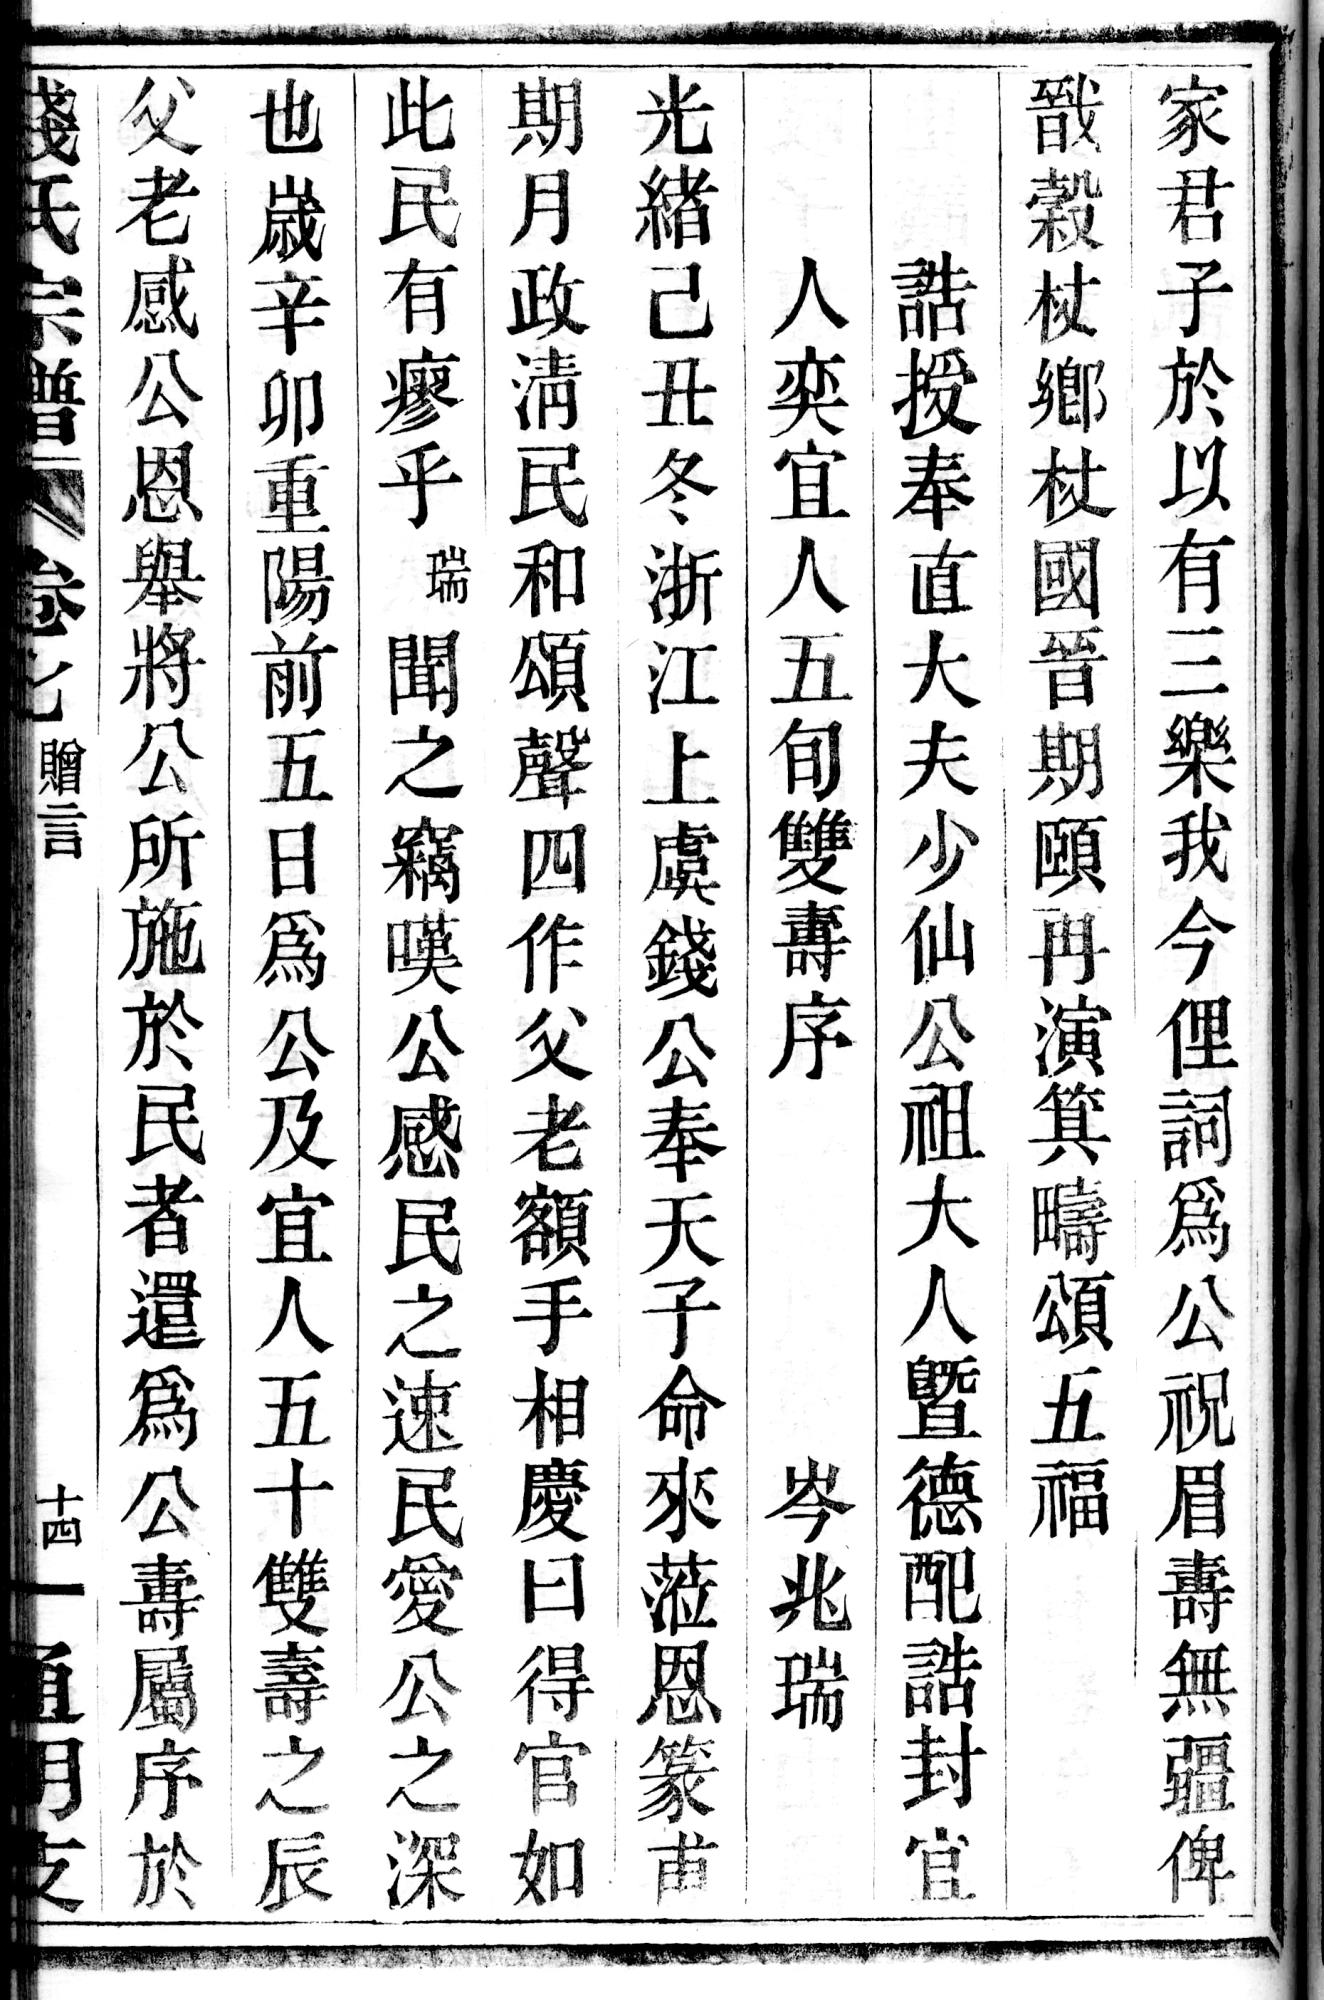 家君子於以有三樂我今俚詞爲公祝眉壽無疆俾
戩穀杖鄉杖國晉期頤再演箕疇頌五福
誥授奉直大夫少仙公祖大人曁德配誥封宜
人奕宜人五旬雙壽序　岑兆瑞
光緒己丑冬浙江上虞錢公奉天子命來蒞恩篆甫
期月政淸民和頌聲四作父老額手相慶曰得官如
此民有瘳乎瑞聞之竊嘆公感民之速民愛公之深
也歲辛卯重陽前五日爲公及宜人五十雙壽之辰
父老感公恩舉將公所施於民者還爲公壽屬序於
錢氏宗譜 卷之 贈言 十四 通明支